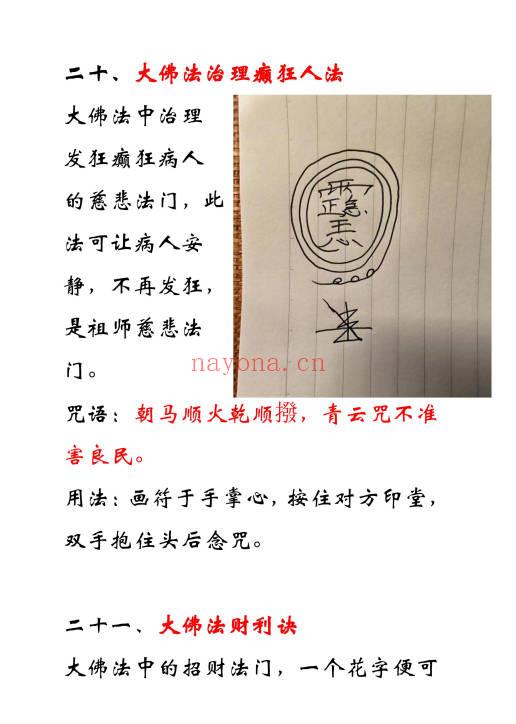 二十、大佛法治理癫狂人法
大佛法中治理
发狂癫狂病人
的慈悲法门，此
法可让病人安
静，不再发狂，
是祖师慈悲法
门。
nayona.cn
咒语：朝马顺火乾顺撥，青云咒不准
害良民。
用法：画符于手掌心，按住对方印堂，
双手抱住头后念咒。
二十一、大佛法财利诀
大佛法中的招财法门，一个花字便可